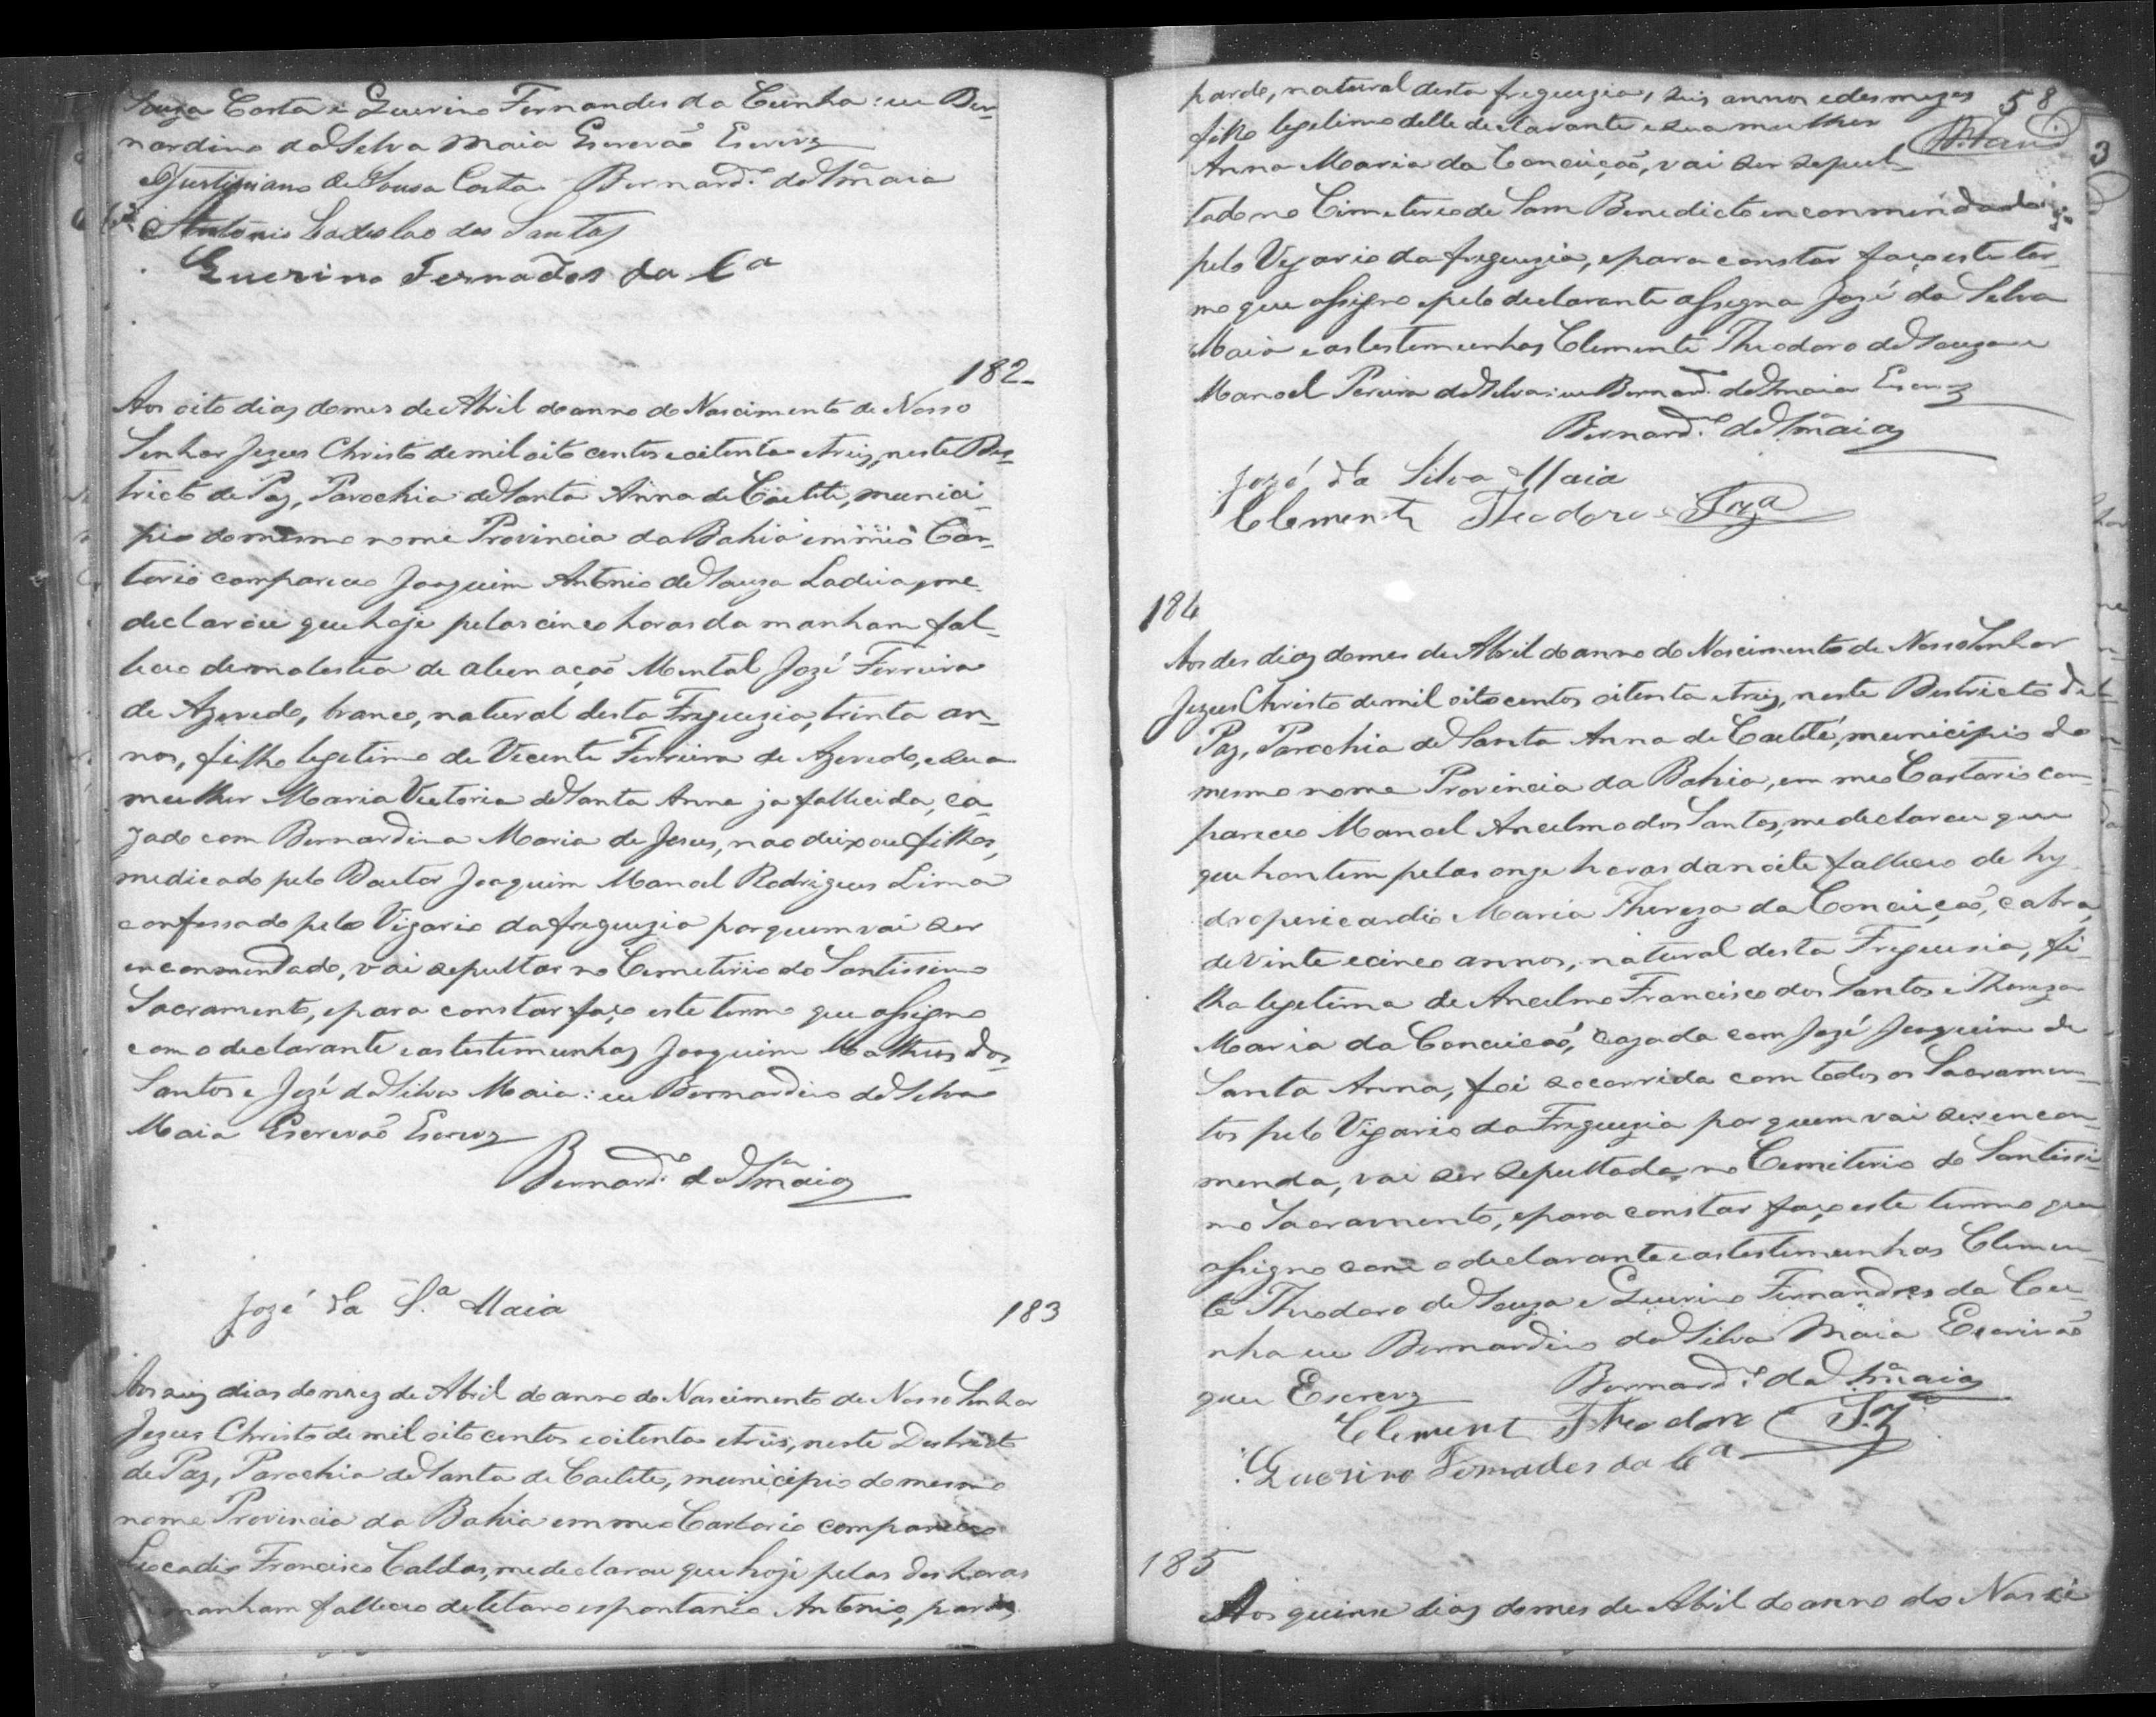 Souza Costa e Guerino Fernandes da Cunha: eu Ber-
nardino da Selva Maia Escrevaõ Escrevy
Justiniano de Sousa Costa Bernard.º da S.ª Maia
Antonio Ladeslao dos Santos
Guerino Fernades da C.ª
182-
Aos oito dias do mes de Abril do anno do Nascimento de Nosso
Senhor Jezus Christo de mil oito centos e oitenta e treis, neste Des-
tricto de Paz, Parochia de Santa Anna de Caetité, munici-
pio do mesmo nome Provincia da Bahia em meo Car-
torio compareceo Joaquim Antonio de Souza Ladeia, e me
declarou que hoje pelas cinco horas da manham fal-
leceo de molestia de alienaçaõ Mental Jozé Ferreira
de Azevedo, branco, natural desta Freguezia, trinta an-
nos, filho legetimo de Vicente Ferreira de Azevedo, e sua
mulher Maria Victoria de Santa Anna ja fallecida, ca-
zado com Bernardina Maria de Jesus, nao deixou filhos,
medicado pelo Doutor Joaquim Manoel Rodrigues Lima
confessado pelo Vigario da freguezia por quem vai ser
encommendado, vai sepultar no Cemeterio do Santissimo
Sacramento, e para constar faço este termo que assigno
com o declarante e as testemunhas Joaquim Matheus dos
Santos e Jozé da Silva Maia: eu Bernardino da Selva
Maia Escrevaõ Escrevy
Bernard.º da S.ª Maia
Jozé da S.ª Maia
183
Aos seis dias do mez de Abril do anno do Nascimento de Nosso Senhor
Jezus Christo de mil oito centos e oitenta e treis, neste Destricto
de Paz, Parochia de Santa de Caetite, municipio do mesmo
nome Provincia da Bahia em meo Cartorio compareceo
Leocadio Francisco Caldas, me declarou que hoje pelas des horas
manham falleceo de tetano espontanio Antonio, pardo
pardo, natural desta freguezia, seis annos e des mezes
58
filho legetimo delle declarante e sua mulher
Anna Maria da Conceiçaõ, vai ser sepul-
tado no Cimeterio de Sam Benedicto encommendado
pelo Vegario da freguezia, e para constar faço este ter-
mo que assigno e pelo declarante assigna Jozé da Selva
Maia e as testemunhas Clemente Theodoro de Souza e
Manoel Pereira da Selva: eu Bernard.º da S.ª Maia Escrevy
Bernard.º da S.ª Maia
Jozé da Silva Maia
Clemente Theodoro Sz.ª
184
Aos des dias do mes de Abril do anno do Nascimento de Nosso Senhor
Jezus Christo de mil oito centos oitenta e treis, neste Destricto de
Paz, Parochia de Santa Anna de Caetité, municipio do
mesmo nome Provincia da Bahia, em meo Cartorio com-
pareceo Manoel Ancelmo dos Santos, me declarou que
que hontem pelas onze horas da noite falleceo de hy
dropericardio Maria Thereza da Conceiçaõ, cabra,
de vinte e cinco annos, natural desta Freguesia, fi-
lha legetima de Ancelmo Francisco dos Santos e Thereza
Maria da Conceicaõ, cazada com Jozé Joaquim de
Santa Anna, foi socorrida com todos os Sacramen-
tos pelo Vigario da Freguezia por quem vai ser encom-
menda, vai ser sepultada, no Cemiterio do Santissi-
mo Sacramento, e para constar faço este termo que
assigno com o declarante e as testemunhas Clemen-
te Theodoro de Souza e Guerino Fernandes da Cu-
nha eu Bernardino da Silva Maia Escrivaõ
que Escrevy Bernard.º da S.ª Maia
Clement Theodoro Sz.ª
Guerino Fernades da C.ª
185
Aos quinse dias do mes de Abril do anno do Nasci